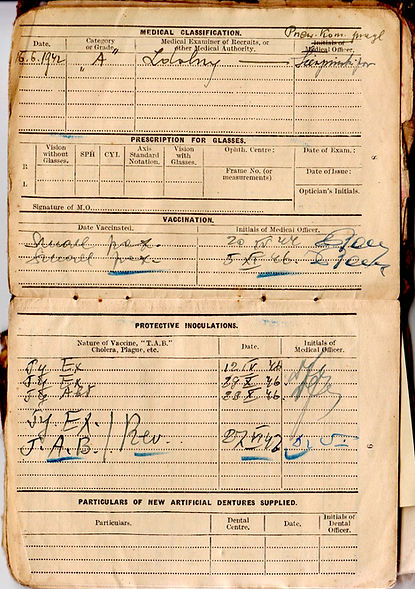 MEDICAL CLASSIFICATION.
Date.
Category or Grade.
Medical Examiner of Recruits, or other Medical Authority.
Initials of Medical Officer.
Przew. Kom. przegl
6.6.1942 "A" Zdolny
8
PRESCRIPTION FOR GLASSES.
Vision without Glasses.
SPH
CYL
Axis Standard Notation.
Vision with Glasses.
Ophth. Centre:
Date of Exam.:
R
Frame No. (or measurements)
Date of Issue:
L
Optician's Initials.
Signature of M.O.
VACCINATION.
Date Vaccinated.
Initials of Medical Officer.
Small pox. 20 IV 44
Small pox. 5 XI 46
PROTECTIVE INOCULATIONS.
Nature of Vaccine, "T.A.B." Cholera, Plague, etc.
Date.
Initials of Medical Officer.
Ty Ex 12 IV 46
Ty Ex 29 X 46.
Ty 28 X 46.
Ty Ex.
T.A.B. Rev. 27 VI 47
9
PARTICULARS OF NEW ARTIFICIAL DENTURES SUPPLIED.
Particulars.
Dental Centre.
Date.
Initials of Dental Officer.